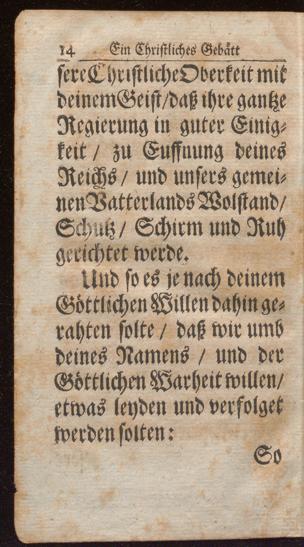 14 Ein Christliches Gebätt
sere Christliche Oberkeit mit
deinem Geist/daß ihre gantze
Regierung in guter Einig-
keit / zu Euffnung deines
Reichs / und unsers gemei-
nen Vatterlands Wolstand/
Schutz / Schirm und Ruh
gerichtet werde.
Und so es je nach deinem
Göttlichen Willen dahin ge-
rahten solte / daß wir umb
deines Namens / und der
Göttlichen Warheit willen/
etwas leyden und verfolget
werden solten:
So